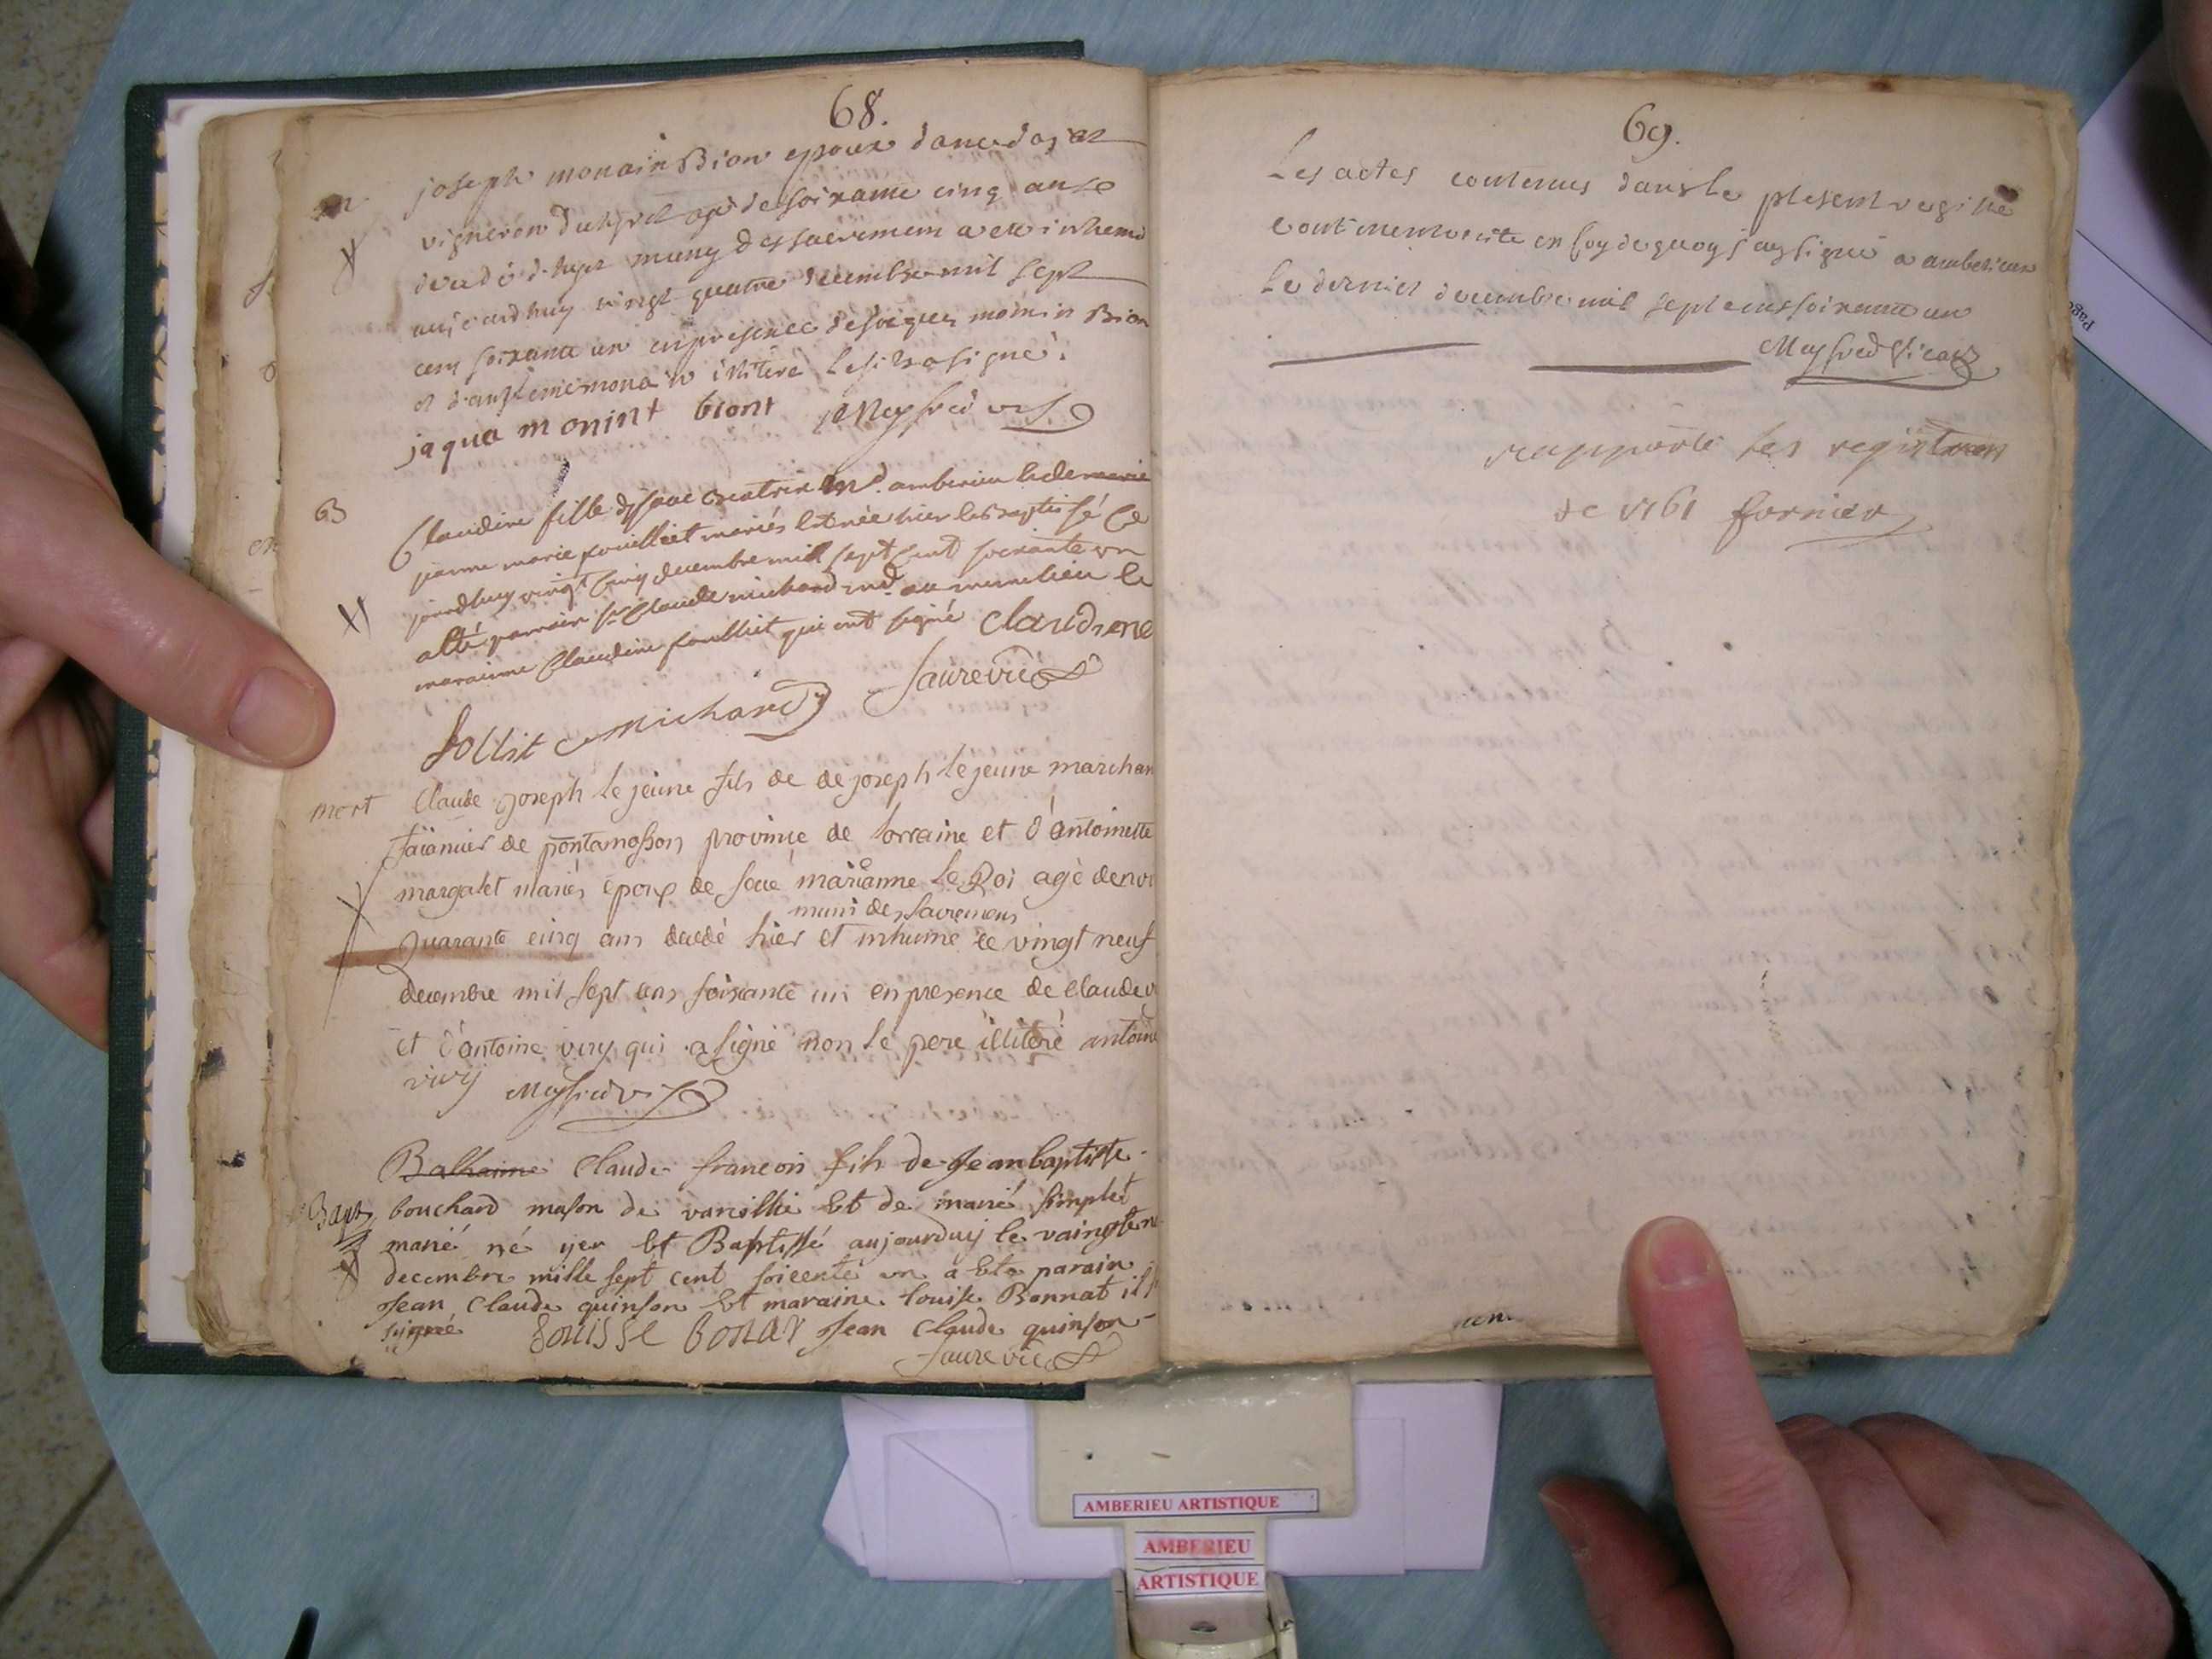 68.
m joseph monain Bion epoux danne
vigneron agé de soixante cinq ans
decedé muny des sacremens a eté inhumé
aujourdhuy vingt quatre decembre mil sept
cens soixante un en presence de jacques monin Bion
et monain illiteré le fils a signé.
jaqua monint biont Meyfred
B Claudine fille amberieu et de
jeanne marie fouilliet mariés est née hier et baptissé ce
jourdhuy vingt cinq decembre mill sept cent soixante un
atté parrain sr Claude michard md. au meme lieu et
maraine Claudine foulliet qui ont signé Claudine
follit Michard faure vic
mort Claude joseph le jeune fils de de joseph le jeune marchan
faiancier de pontamosson province de lorraine et d'antoinette
margalet mariés epoux de feue marianne le Roi agé
munis des sacremens
quarante cinq ans decedé hier et inhumé ce vingt neuf
decembre mil sept cens soixante un en presence de Claude
et d'antoine viry qui a signé non le pere illiteré antoine
viry Meyfred
Bapt Claude francois fils de Jean baptiste
bouchard mason de et de marié simplet
marié né yer et Baptissé aujourduij le
decembre mille sept cent soicente un a ete parain
Jean Claude quinson et maraine louise Bonnat
signé Louisse bonar Jean Claude quinson
faure vic
69.
Les actes contenus dans le present registre
en foy de quoy j'ay signé a amberieu
le dernier decembre mil sept cens soixante un
Meyfred vicair
rapporté les registres
de 1761 fornier
AMBERIEU ARTISTIQUE
AMBERIEU
ARTISTIQUE
Page